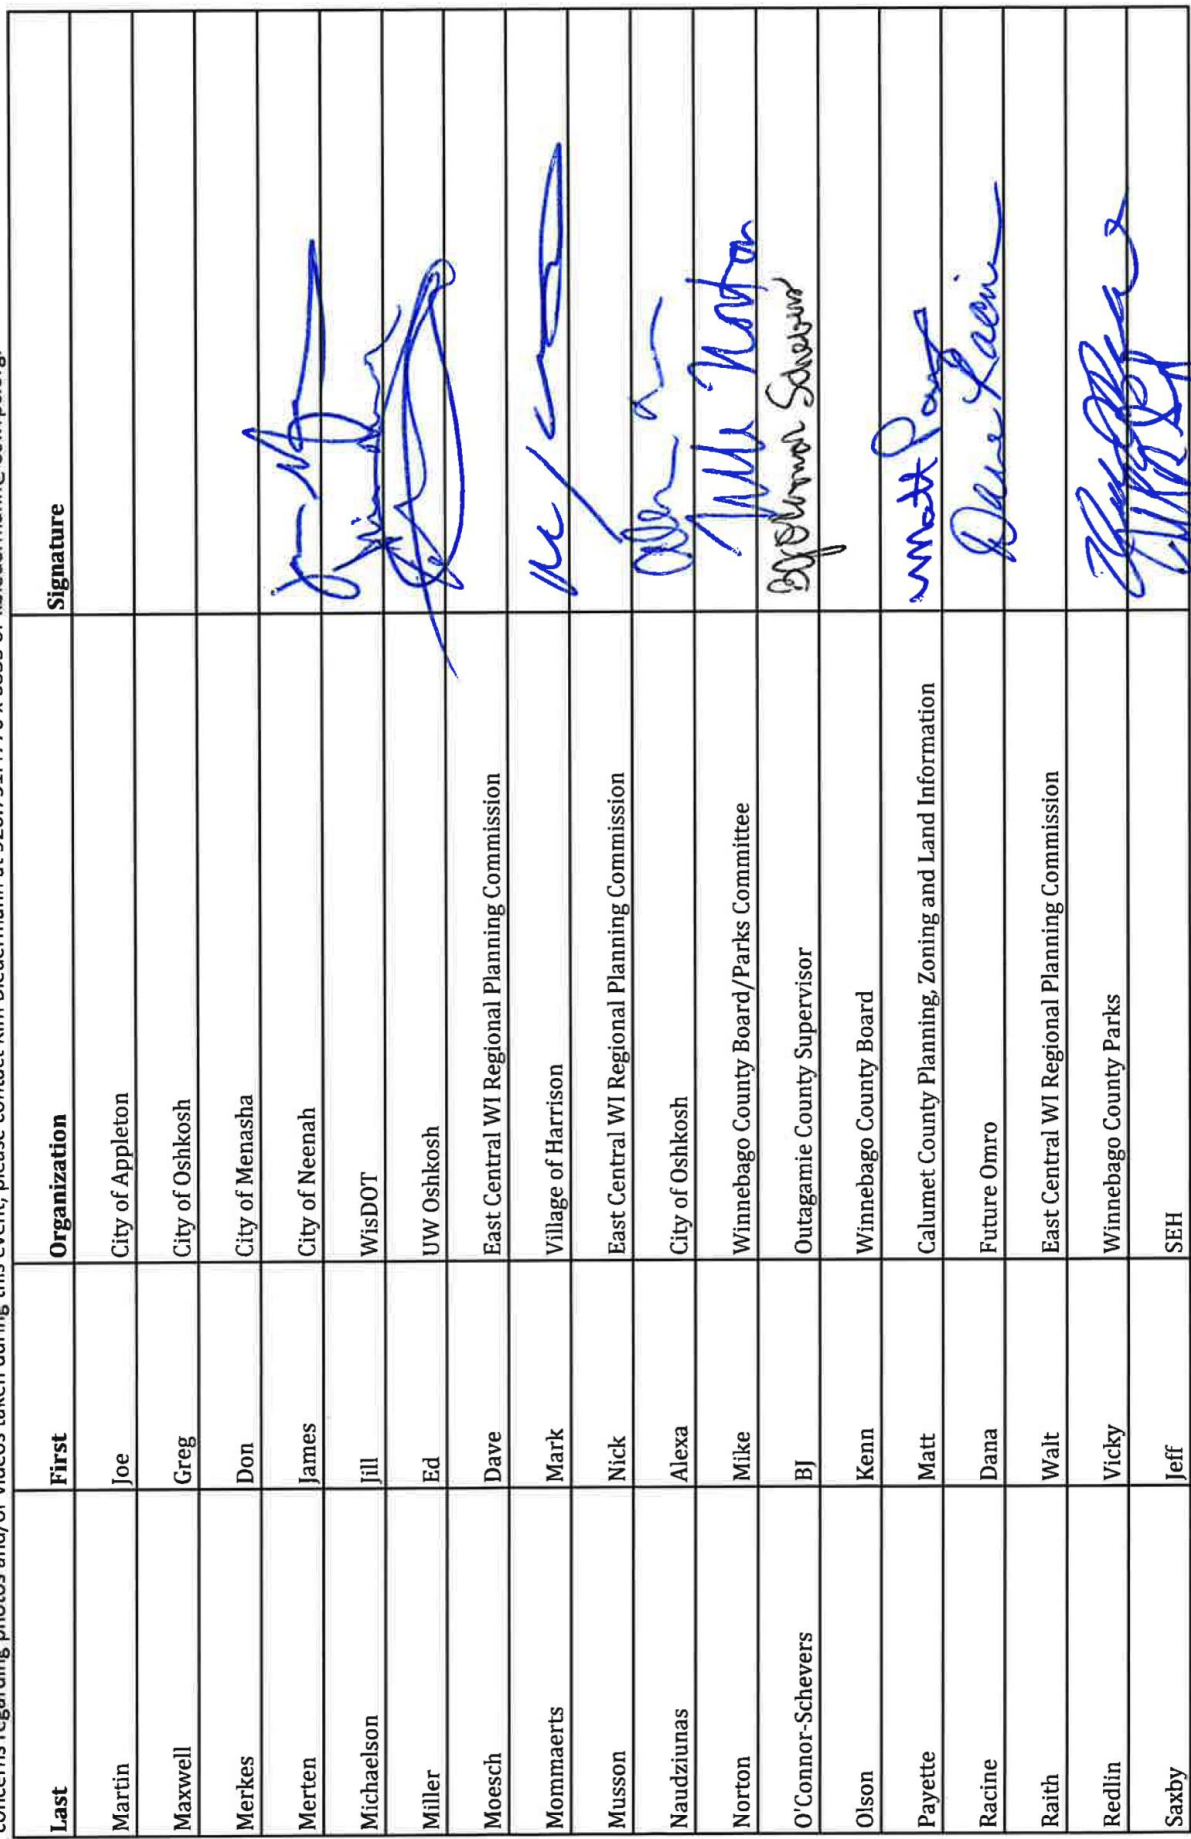 concerns regarding photos and/or videos taken during this event, please contact Kim Biedermann at
Last First Organization Signature
Martin Joe City of Appleton
Maxwell Greg City of Oshkosh
Merkes Don City of Menasha
Merten James City of Neenah
Michaelson Jill WisDOT
Miller Ed UW Oshkosh
Moesch Dave East Central WI Regional Planning Commission
Mommaerts Mark Village of Harrison
Musson Nick East Central WI Regional Planning Commission
Naudziunas Alexa City of Oshkosh
Norton Mike Winnebago County Board/Parks Committee Norton
O'Connor-Schevers BJ Outagamie County Supervisor BJ O'Connor Schevers
Olson Kenn Winnebago County Board
Payette Matt Calumet County Planning, Zoning and Land Information Matt
Racine Dana Future Omro Dana Racine
Raith Walt East Central WI Regional Planning Commission
Redlin Vicky Winnebago County Parks
Saxby Jeff SEH